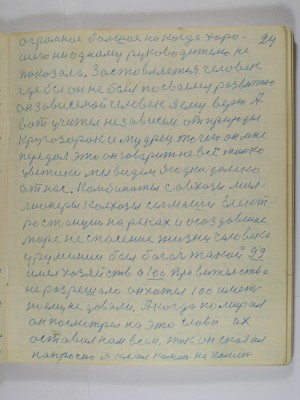 огромное большое но когда хоро-
шего ни одному руководителю не
показала. Заставляется человек
где бы он не был по своему развитию
он зависемой человек я ему верю А
вот учител независем от природы
кругозорок и мудрец то чего он мне
передал это он говорит не всё только
цветики мы видем ягодки далеко
от нас. Комбинаты совхозы мил-
лионеры колхозы
ростанции на реках и создавшие
море не спасение жизни человека
у румынии был богач такой 99
имел хозяйств а 100 правительство
не розрешало он хотел 100 имет
но ему не довали. А когда помирал
он посмотрел на это слово их
оставил нам всем. Так он сказал
напрасно я
24